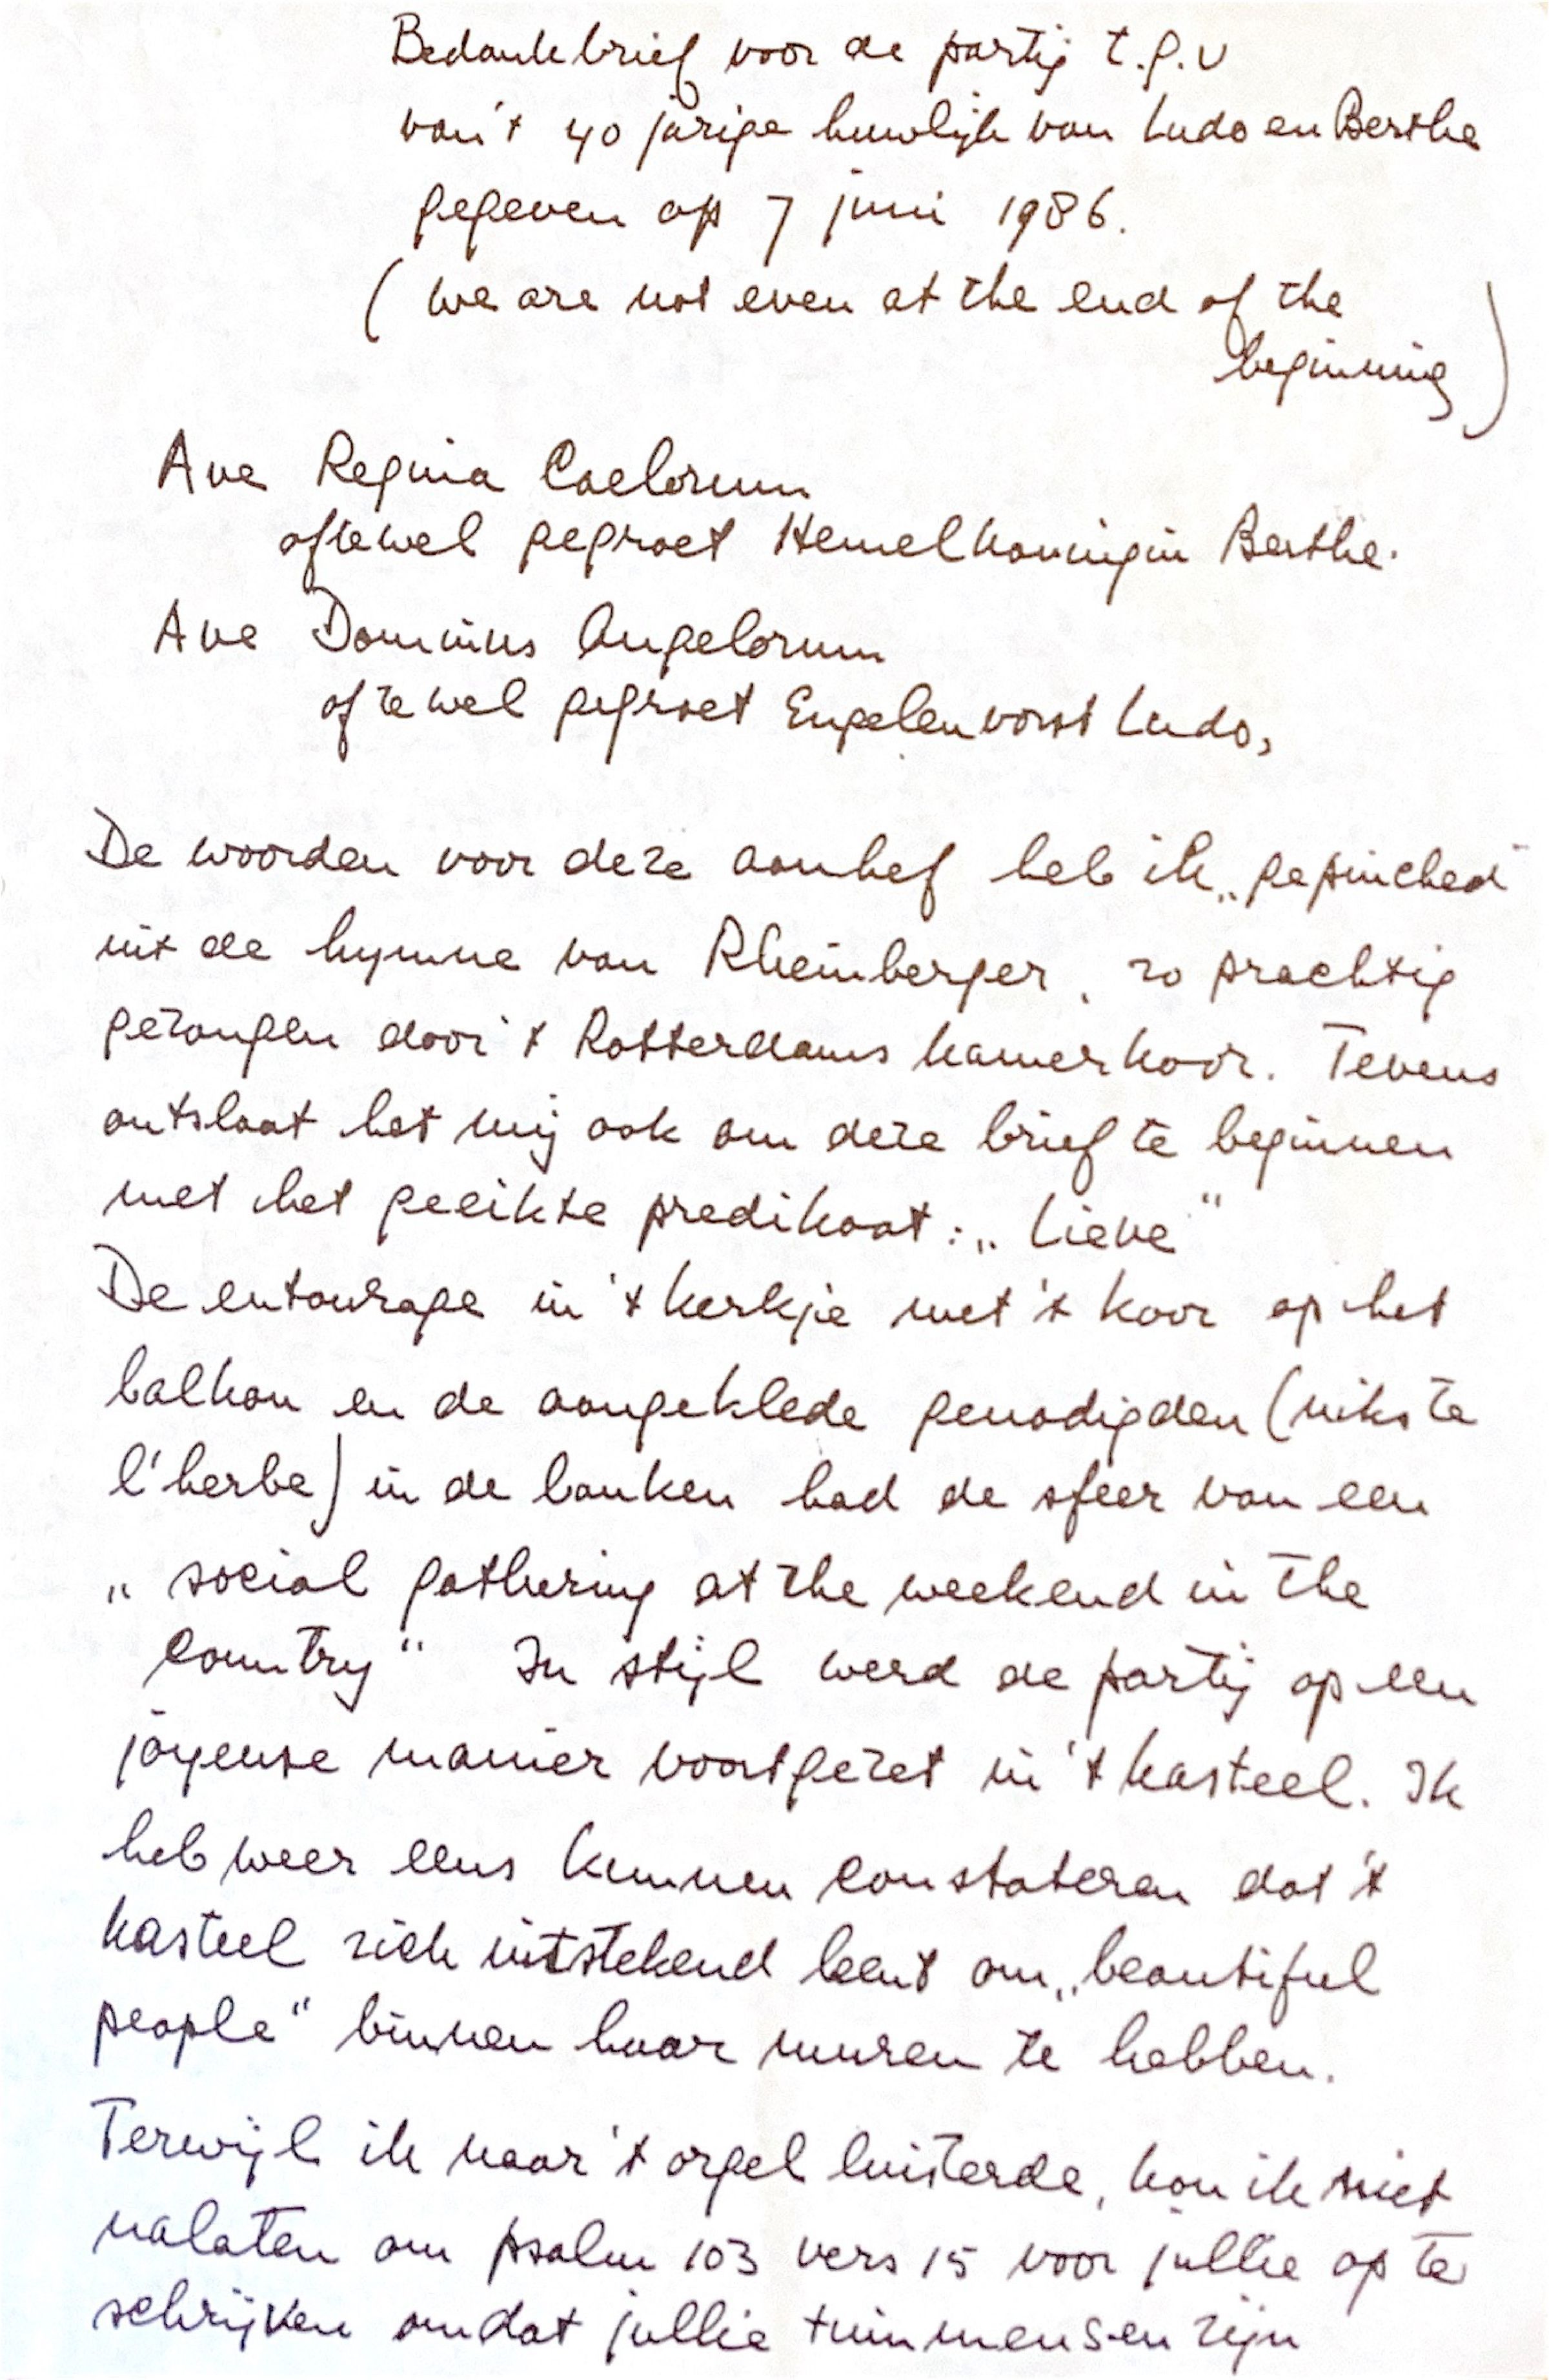 Bedankbrief voor de partij t.g.v
van 't 40 jarige huwlijk van Ludo en Berthe
gegeven op 7 juni 1986.
( We are not even at the end of the
beginning )
Ave Regina Caelorum
oftewel gegroet Hemelkoningin Berthe.
Ave Dominus Angelorum
oftewel gegroet Engelenvorst Ludo,
De woorden voor deze aanhef heb ik „gepinched"
uit de hymne van Rheinberger, zo prachtig
gezongen door 't Rotterdams kamerkoor. Tevens
ontslaat het mij ook om deze brief te beginnen
met het geeikte predikaat: „Lieve"
De entourage in 't kerkje met 't koor op het
balkon en de aangeklede genodigden (niks te
l'herbe) in de banken had de sfeer van een
„social gathering at the weekend in the
country" In stijl werd de partij op een
joyeuse manier voortgezet in 't kasteel. Ik
heb weer eens kunnen constateren dat 't
kasteel zich uitstekend leent om „beautiful
people" binnen haar muren te hebben.
Terwijl ik naar 't orgel luisterde, kon ik niet
nalaten om psalm 103 vers 15 voor jullie op te
schrijven omdat jullie tuinmensen zijn